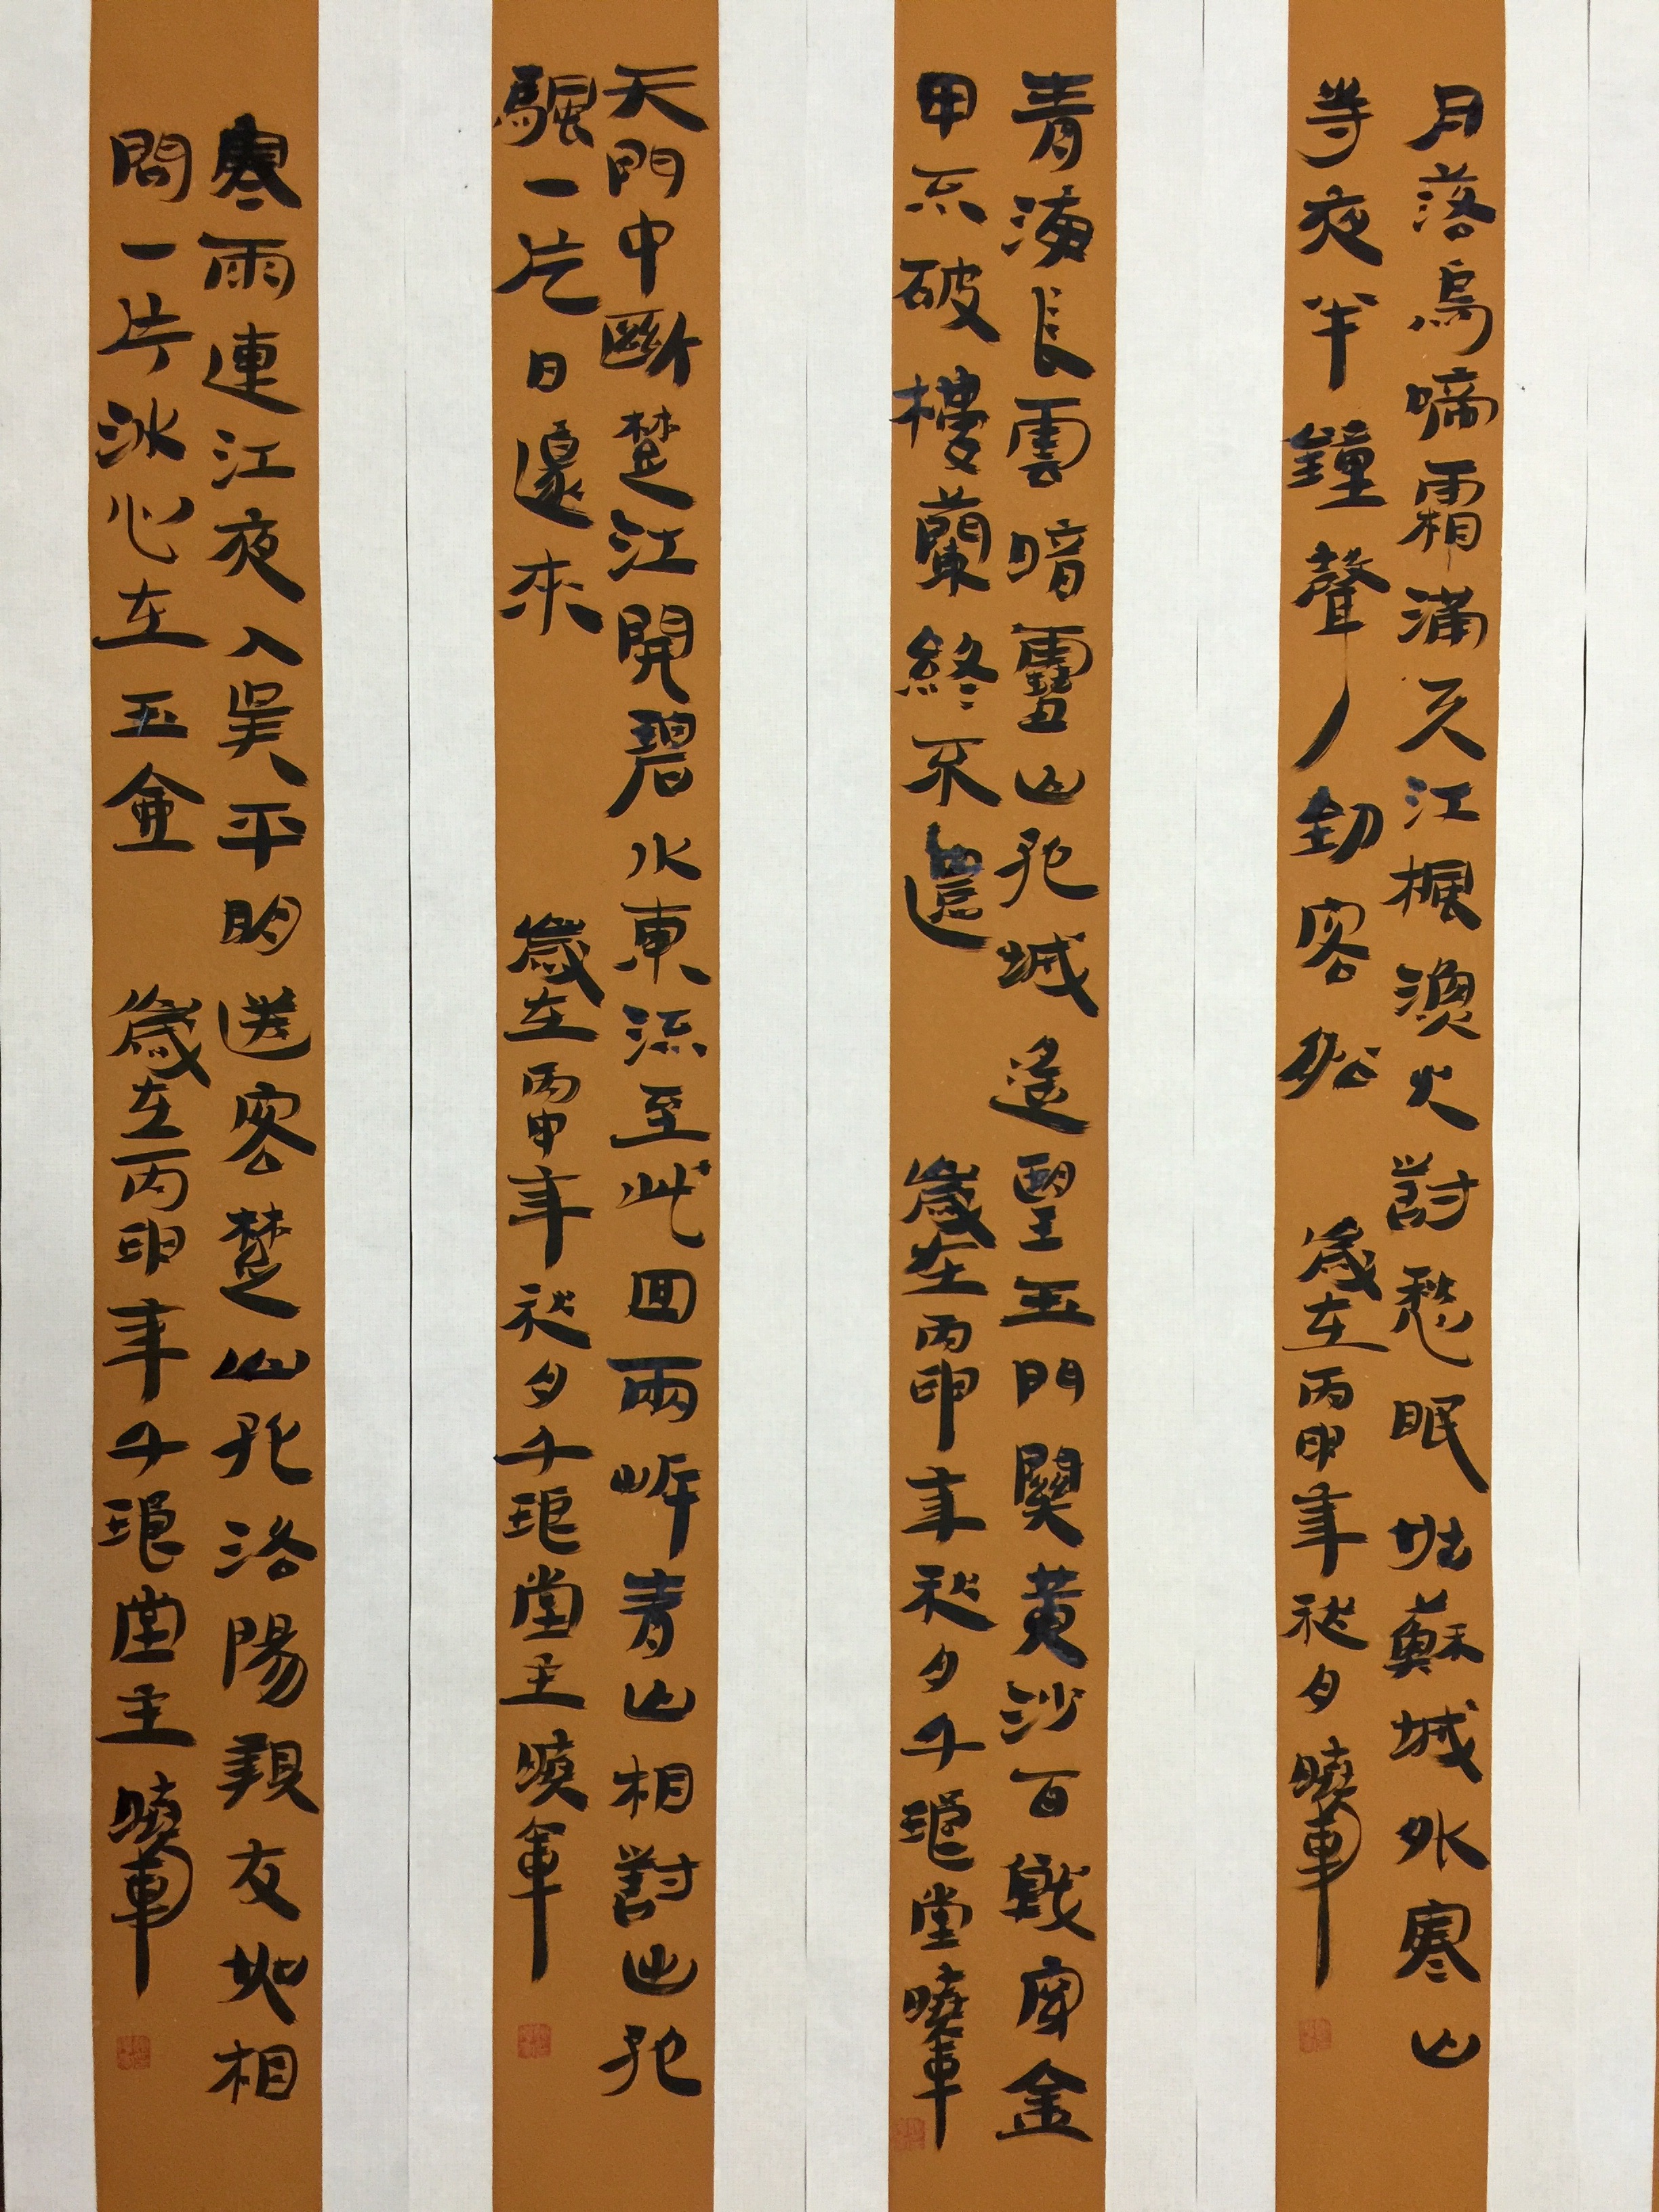 月落烏啼霜滿天江楓漁火對愁眠姑蘇城外寒山
寺夜半鐘聲到客船 歲在丙申年秋夕曉軍
青海長雲暗雪山孤城遙望玉門關黃沙百戰穿金
甲不破樓蘭終不還 歲在丙申年秋夕千堂曉軍
天門中斷楚江開碧水東流至此回兩岸青山相對出孤
颿一片日邊來 歲在丙申年秋夕千堂主曉軍
寒雨連江夜入吳平明送客楚山孤洛陽親友如相
問一片冰心在玉壺 歲在丙申年千堂主曉軍